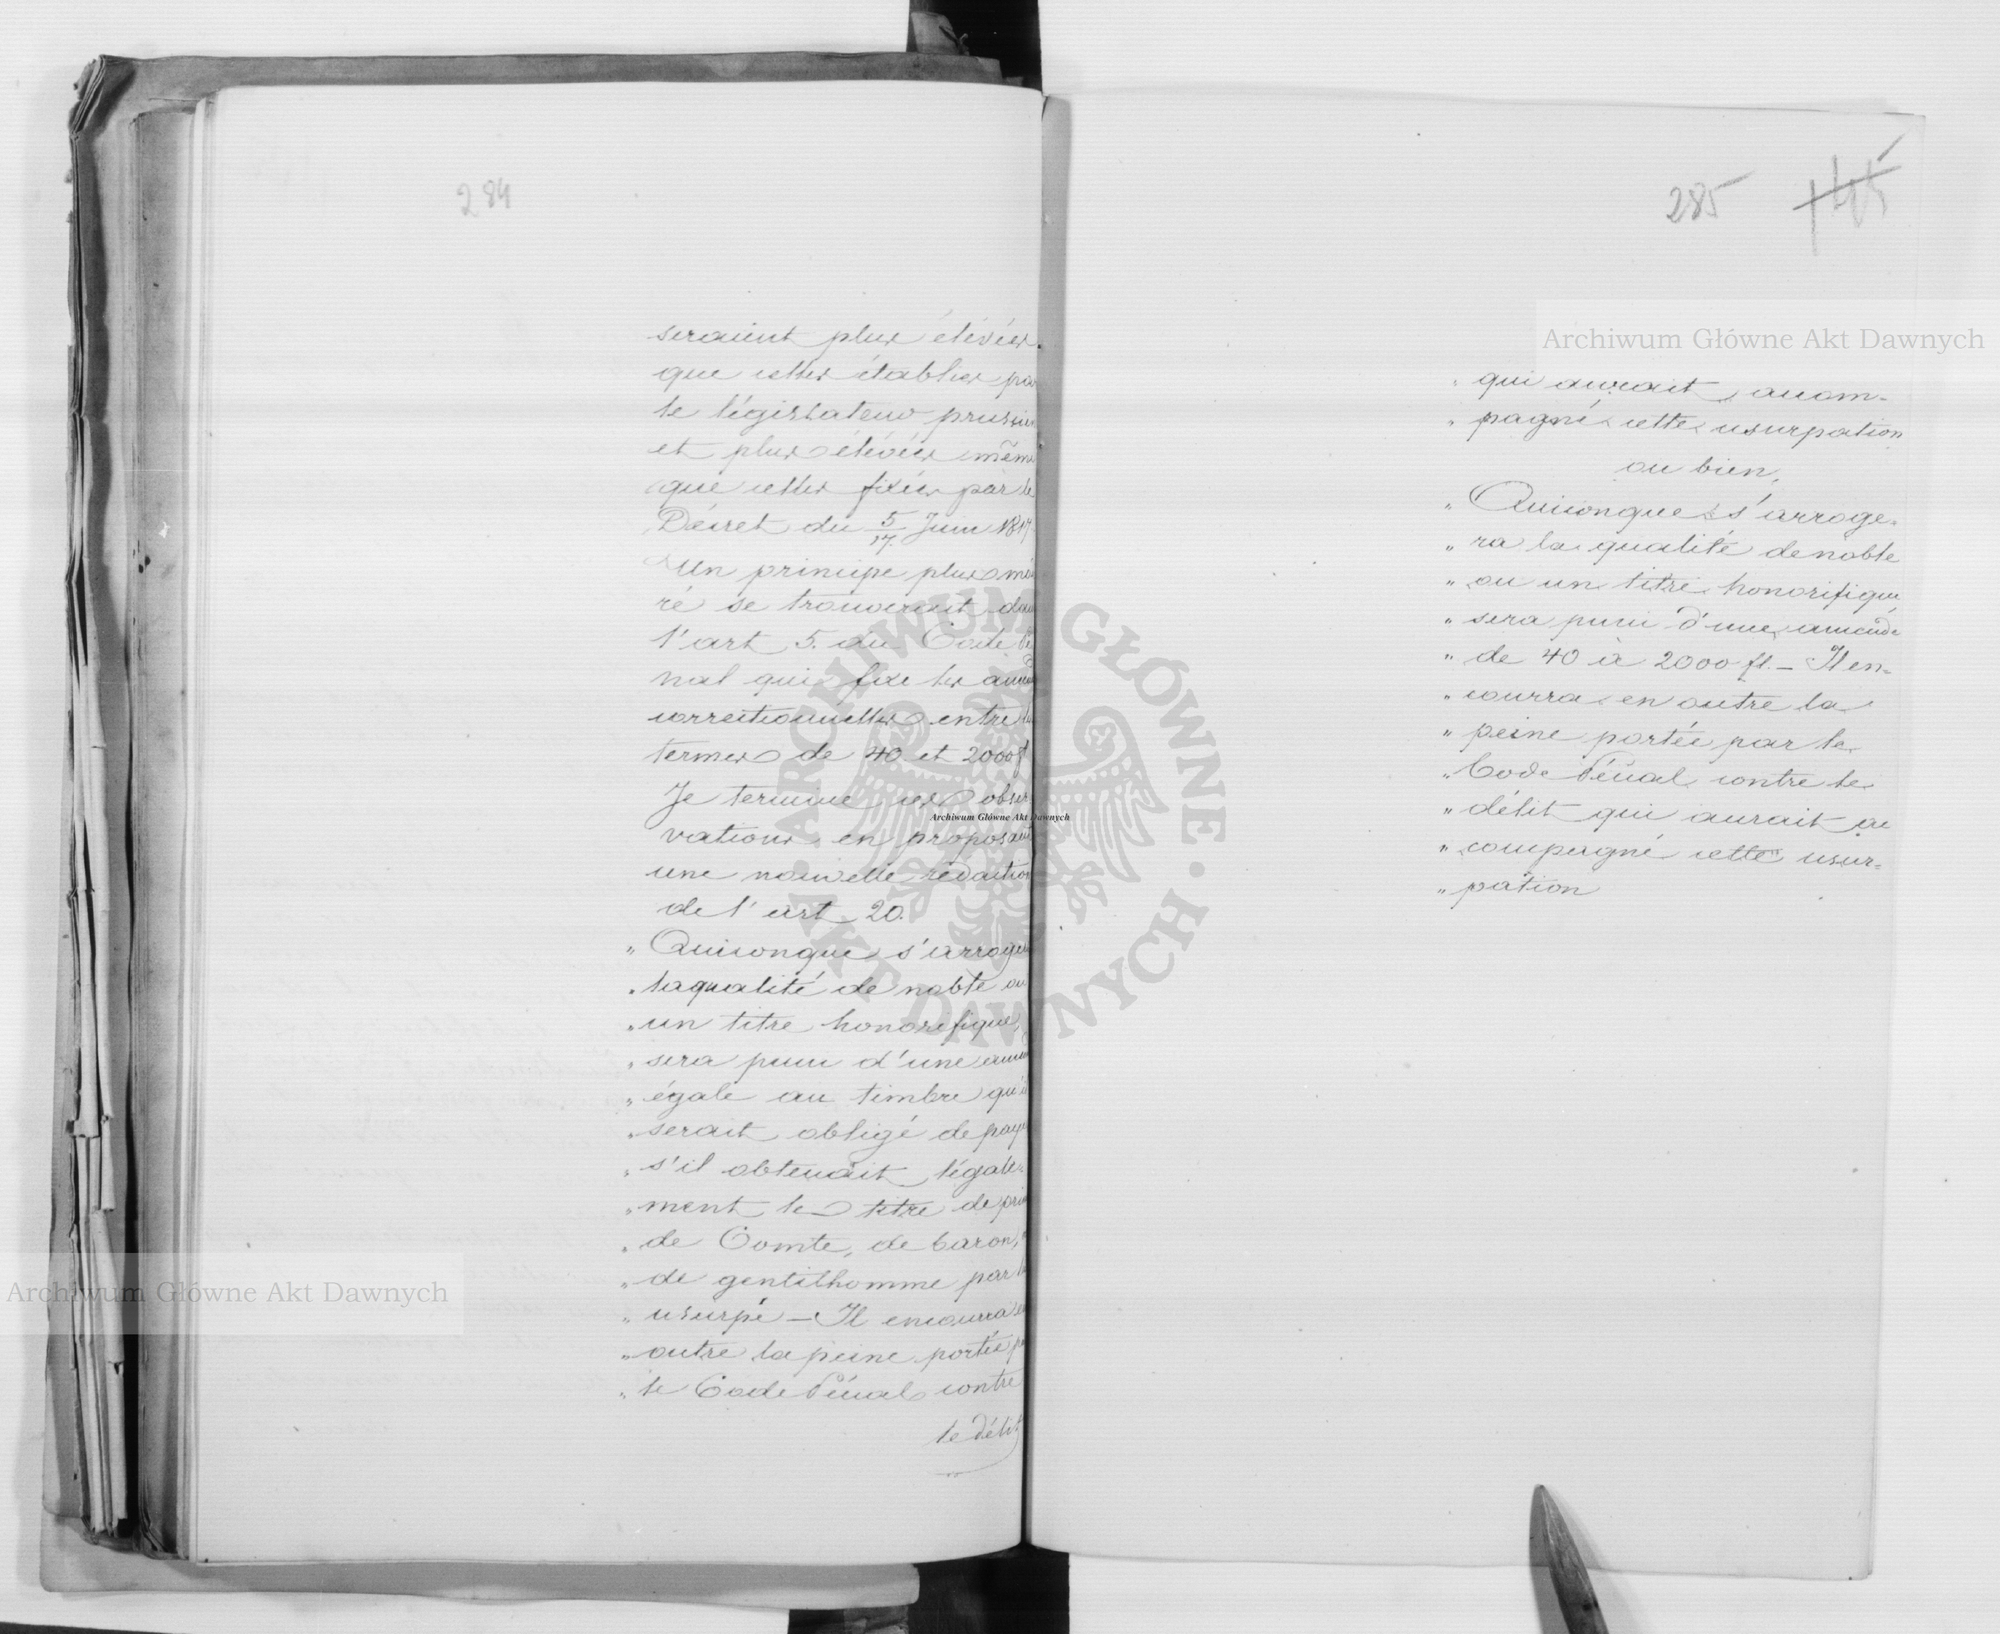 284
seraient plus élevées
que celles établies par
le législateur prussien
et plus élevées même
que celles fixées par le
Décret du 5/17 Juin 1817.
Un principe plus
ré se trouverait dans
l'art 5. du Code Pé
nal qui fixe les
correctionnelles entre les
termes de 40 et 2000 f
Je termine ces obser
vations en proposant
une nouvelle rédaction
de l'art 20.
" Quiconque s'arroge
" la qualité de noble ou
" un titre honorifique,
" sera puni d'une
" égale au timbre qu'il
" serait obligé de payer
" s'il obtenait légale=
" ment le titre de
" de Comte, de baron,
" de gentilhomme par
" usurpé – Il encourra en
" outre la peine portée par
" le Code Pénal contre
le délit
285
145
" qui aurait accom-
" pagné cette usurpation
ou bien,
" Quiconque s'arroge=
" ra la qualité de noble
" ou un titre honorifique
" sera puni d'une amende
" de 40 à 2000 fl. – Il en=
" courra en outre la
" peine portée par le
" Code Pénal contre le
" délit qui aurait ac
" compagné cette usur=
" pation
Archiwum Główne Akt Dawnych
Archiwum Główne Akt Dawnych
Archiwum Główne Akt Dawnych
ARCHIWUM GŁÓWNE · AKT DAWNYCH ·